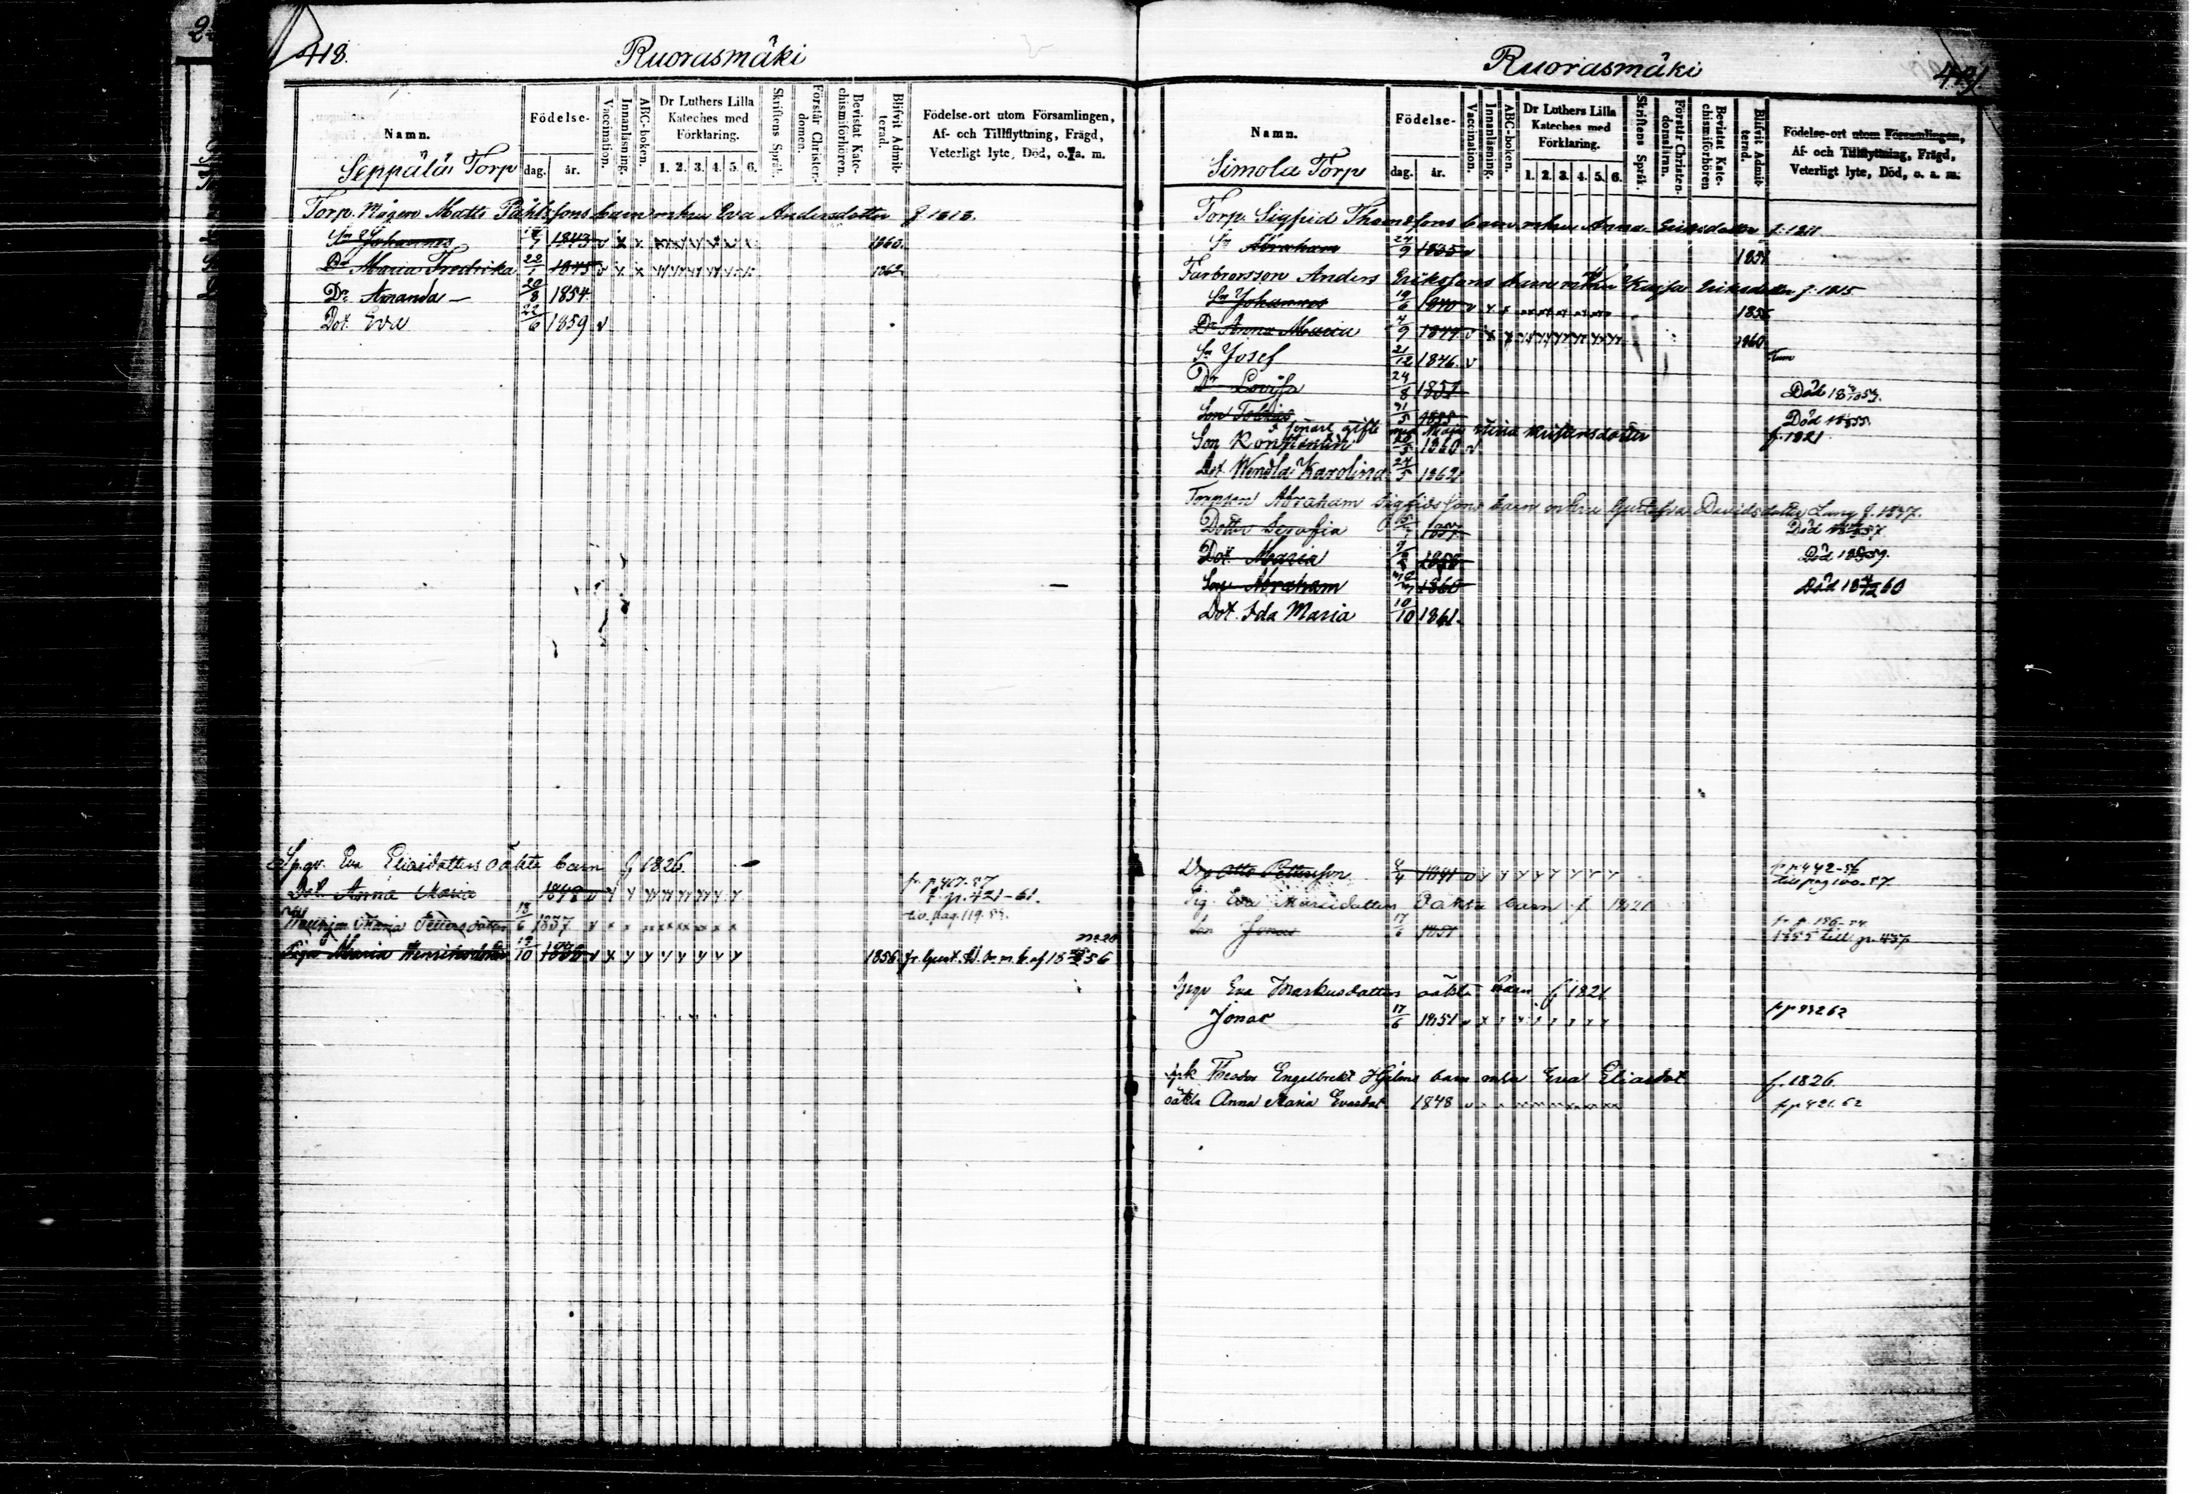 418.
Ruorasmäki
Namn.
Födelse-
dag. år.
Vaccination.
Innanläsning.
ABC-boken.
Dr Luthers Lilla Kateches med Förklaring.
1. 2. 3. 4. 5. 6.
Skriftens Språk.
Förstår Christendomen.
Bevistat Katechismiförhören.
Blifvit Admitterad.
Födelse-ort utom Församlingen,
Af- och Tillflyttning, Frägd,
Veterligt lyte, Död, o. a. m.
Seppälä Torp
Torp. Mågen Matts Påhlssons barn m hu Eva Andersdotter f 1818.
Sn Johannes 1843 1860.
Dr Maria Fredrika 22/1 1845 1862
Dr Amanda 20/8 1854.
Dot. Eva 22/6 1859
Sp.qv. Eva Eliasdotters oäkta barn f 1826.
Dot. Anna Maria 1848 fr p 417-57
t. p. 421-61.
Maria Pettersdotter 18/6 1837 till pag. 119.59.
Piga Maria Henriksdotter 19/10 1856. fr Gust. Ad.
Ruorasmäki
419.
Namn.
Födelse-
dag. år.
Vaccination.
Innanläsning.
ABC-boken.
Dr Luthers Lilla Kateches med Förklaring.
1. 2. 3. 4. 5. 6.
Skriftens Språk.
Förstår Christendomsläran.
Bevistat Katechismiförhören
Blifvit Admitterad.
Födelse-ort utom Församlingen,
Af- och Tillflyttning, Frägd,
Veterligt lyte, Död, o. a. m.
Simola Torp
Torp. Sigfrid Thomassons barn m hu Anna Eriksdotter f. 1811
Sn Abraham 24/9 1835 1854
Farbrorsson Anders Erikssons barn m hu Kajsa Eriksdotter f. 1815
Sn Johannes 19/6 1840 1856
Dr Anna Maria 4/9 1844 1860
Sn Josef 21/12 1846.
Dr Lovisa 24/8 1851 Död
Son Tobias 31/5 1855 Död
senare gifte med Maja Stina f. 1821
Son Konstantin 1860
Dot Wendla Karolina 24/5 1862
Abraham Sigfridssons barn m hu Gustafva Davidsdotter f. 1837.
Dotter Serafia 1857 Död
Dot. Maria 1858 Död
Son Abraham 1860 Död 18 4/12 60
Dot. Ida Maria 10/10 1861.
Otto Pettersson 1841 fr p 442-56
till pag 100-57.
Eva oäkta barn f 1821
Son Jonas 17/6 1851 fr p. 186-54
1855 till p. 437
Eva Markusdotters oäkta barn f 1821
Jonas 17/6 1851
Theodor Engelbrekt Hjelms barn m hu Eva Eliasdot f. 1826.
oäkta Anna Maria Evasdot 1848 fr p 421.62